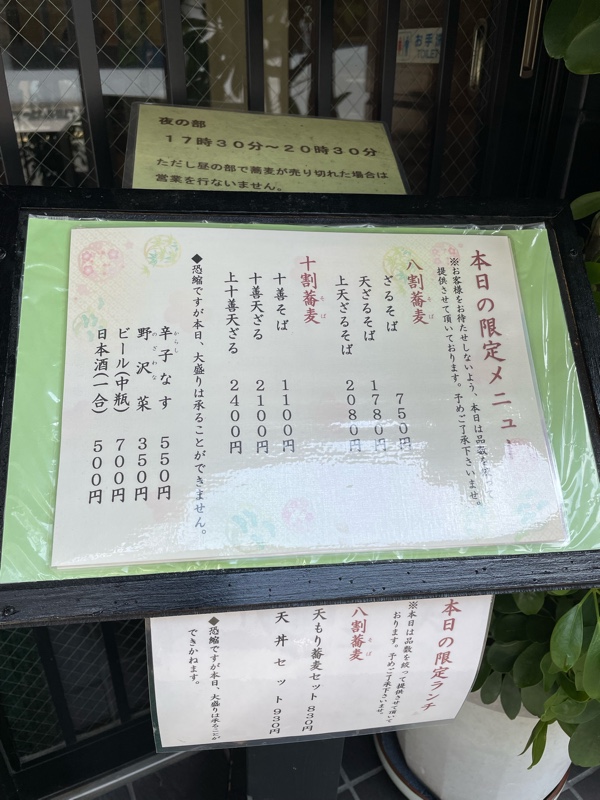 お手洗
TOILET
夜の部
17時30分～20時30分
ただし昼の部で蕎麦が売り切れた場合は
営業を行ないません。
本日の限定メニュー
※お客様をお待たせしないよう、本日は品数を絞って
提供させて頂いております。予めご了承下さいませ。
八割蕎麦
そば
ざるそば 750円
天ざるそば 1780円
上天ざるそば 2080円
十割蕎麦
そば
十善そば 1100円
十善天ざる 2100円
上十善天ざる 2400円
◆恐縮ですが本日、大盛りは承ることができません。
辛子なす 550円
からし
野沢菜 350円
のざわな
ビール(中瓶) 700円
日本酒(一合) 500円
本日の限定ランチ
※本日は品数を絞って提供させて頂いて
おります。予めご了承下さいませ。
八割蕎麦
そば
天もり蕎麦セット 830円
天丼セット 930円
◆恐縮ですが本日、大盛りは承ることが
できかねます。